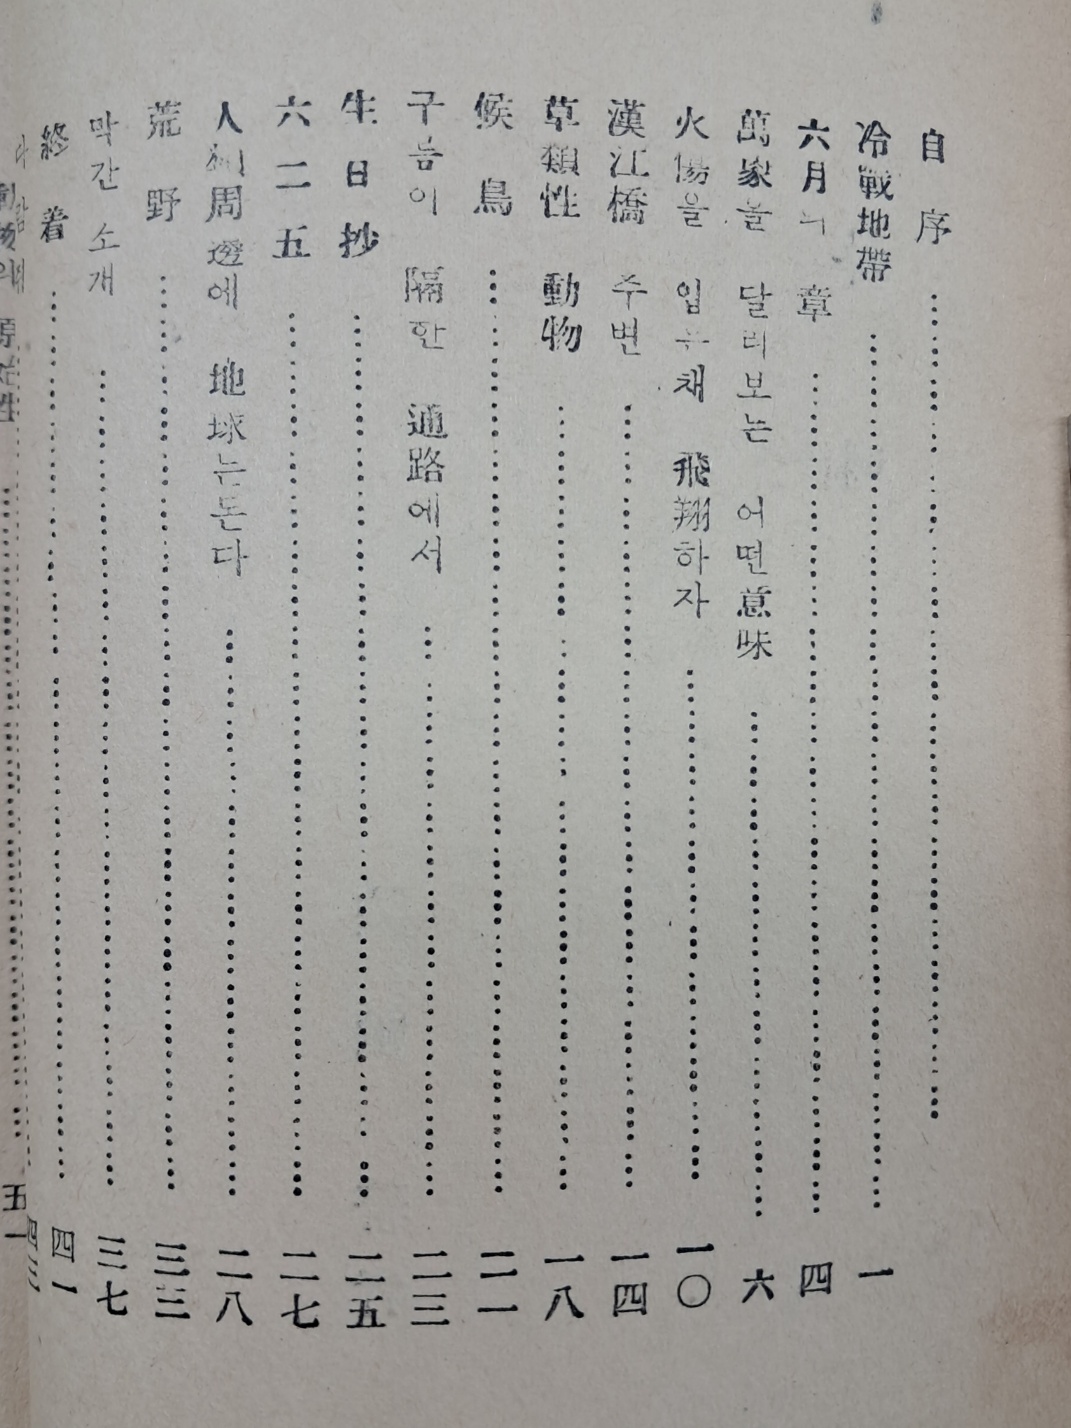 自序
冷戰地帶 一
六月의 章 四
萬象을 달리보는 어떤意味 六
火傷을 입은채 飛翔하자 一〇
漢江橋 주변 一四
草類性 動物 一八
候鳥 二一
구름이 隔한 通路에서 二三
生日抄 二五
六二五 二七
人類周邊에 地球는돈다 二八
荒野 三三
막간 소개 三七
終着 四一
四三
原始性 五一